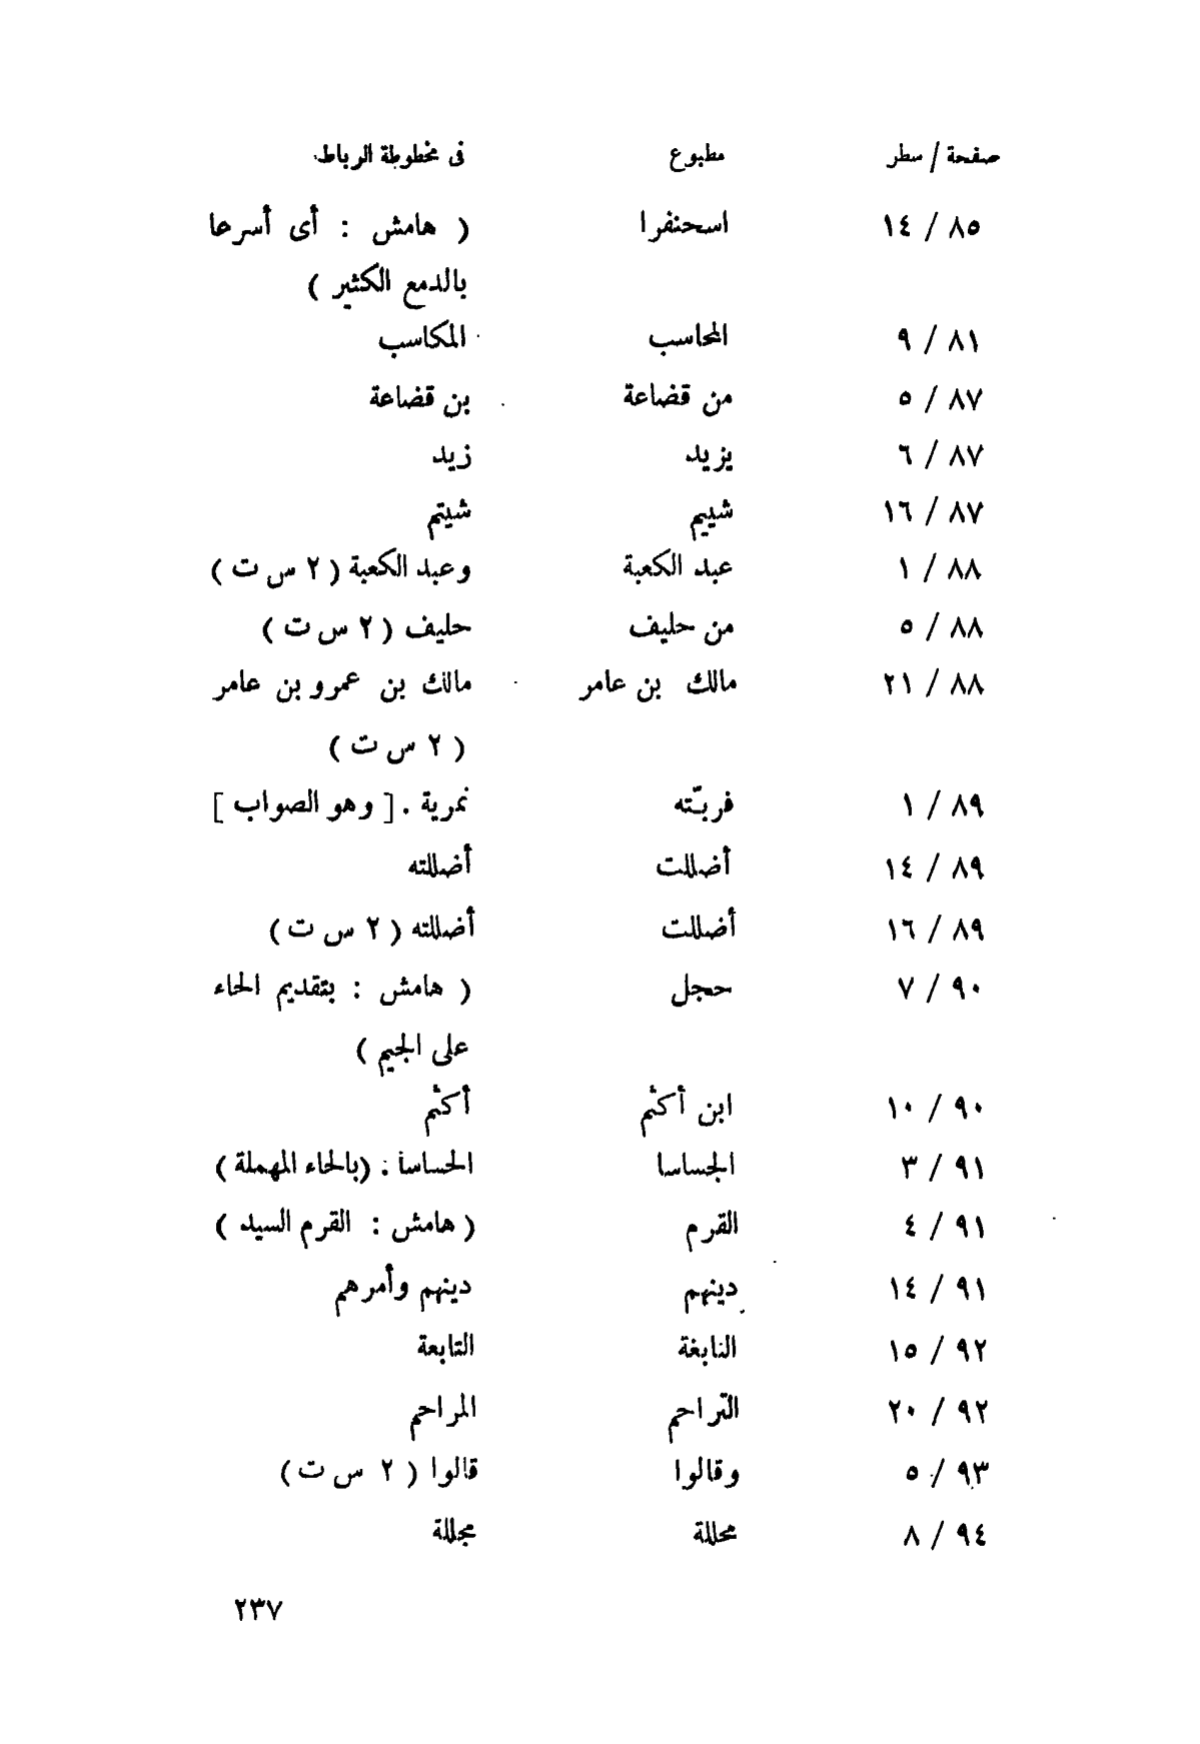 صفحة / سطر مطبوع فى مخطوطة الرباط
٨٥ / ١٤ اسحنفرا ( هامش : أى أسرعا
بالدمع الكثير )
٨١ / ٩ المحاسب المكاسب
٨٧ / ٥ من قضاعة بن قضاعة
٨٧ / ٦ يزيد زيد
٨٧ / ١٦ شييم شيتم
٨٨ / ١ عبد الكعبة وعبد الكعبة ( ٢ س ت )
٨٨ / ٥ من حليف حليف ( ٢ س ت )
٨٨ / ٢١ مالك بن عامر مالك بن عمرو بن عامر
( ٢ س ت )
٨٩ / ١ فربّته نمرية . [ وهو الصواب ]
٨٩ / ١٤ أضللت أضللته
٨٩ / ١٦ أضللت أضللته ( ٢ س ت )
٩٠ / ٧ حجل ( هامش : بتقديم الحاء
على الجيم )
٩٠ / ١٠ ابن أكثم أكثم
٩١ / ٣ الجساسا الحساسا . (بالحاء المهملة )
٩١ / ٤ القرم ( هامش : القرم السيد )
٩١ / ١٤ دينهم دينهم وأمرهم
٩٢ / ١٥ النابغة التابعة
٩٢ / ٢٠ التراحم المراحم
٩٣ / ٥ وقالوا قالوا ( ٢ س ت )
٩٤ / ٨ محللة مجللة
٢٣٧